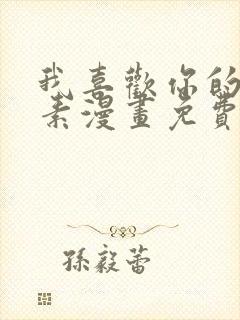 我喜歡你的
素漫畫免費
孫毅蕾